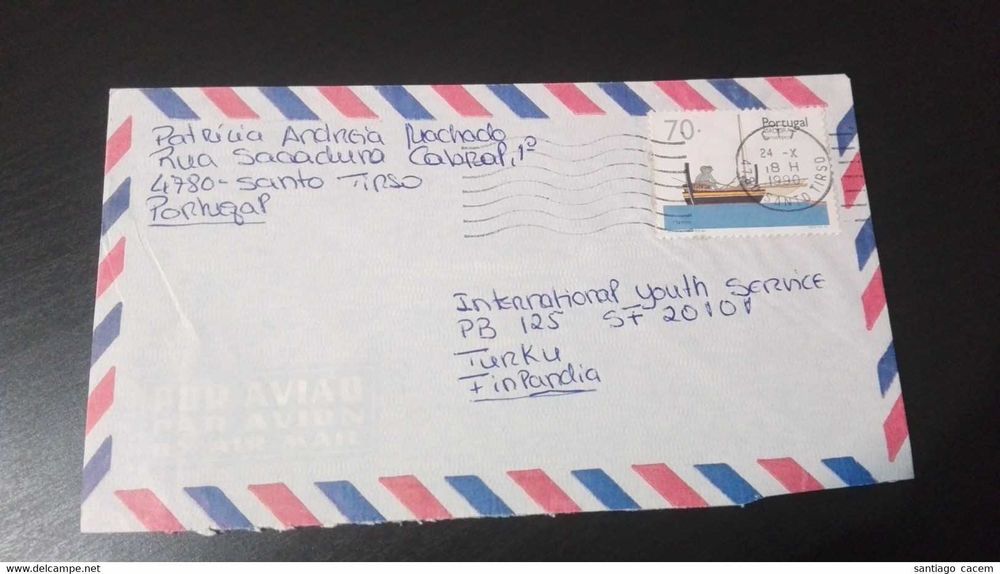 Patrícia Andreia Machado
Rua Sacadura Cabral, 1º
4780 - Santo Tirso
Portugal
70.
Portugal
24 -X
18 H
SANTO TIRSO
International Youth Service
PB 125 SF 20101
Turku
Finlandia
POR AVIÃO
PAR AVION
BY AIR MAIL
santiago cacem